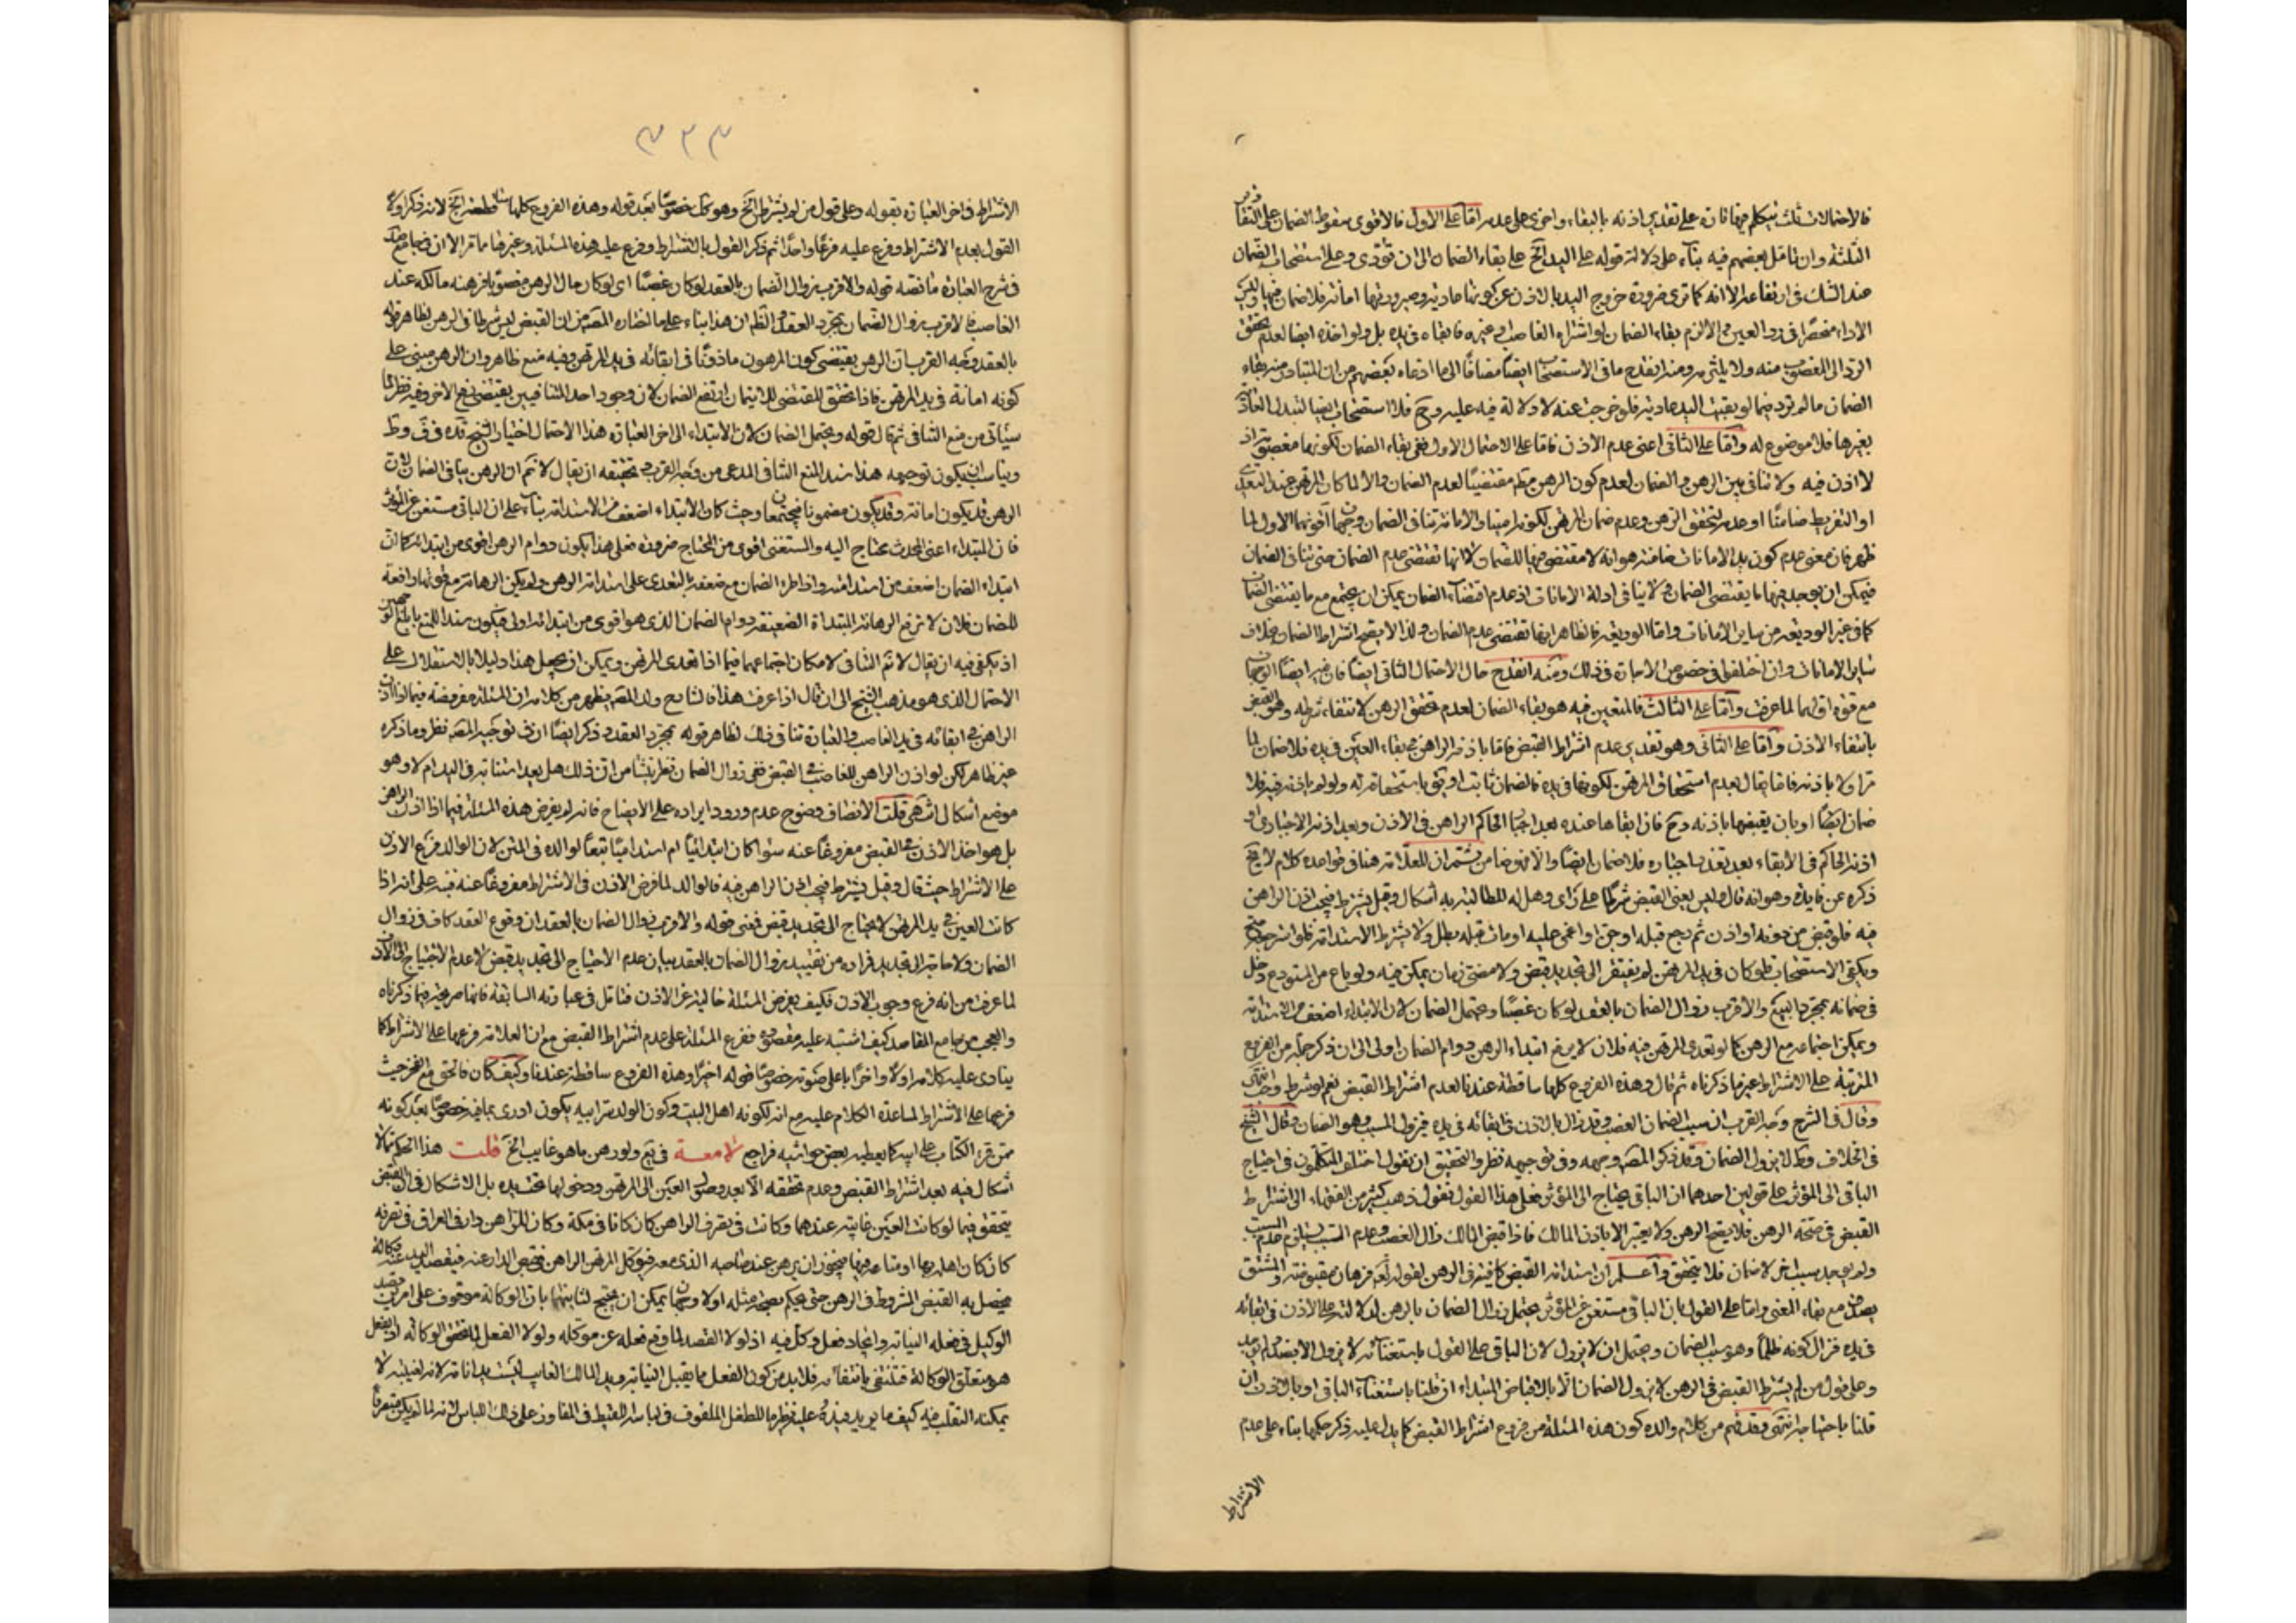 فالاحتمالات ثلث نتكلم فيها تارة على تقدير اذنه بالبقاء واخرى على عدمه اما على الاول فالاقوى سقوط الضمان على التقادير
الثلثة وان تامل بعضهم فيه بناء على دلالة قوله على اليد الخ على بقاء الضمان الى ان تؤدى وعلى استصحاب الضمان
عند الشك فى ارتفاعه الا انه كما ترى ضرورة خروج اليد بالاذن عن كونها عادية وصيرورتها امانة فلا ضمان فيها وليس
الاداء منحصرا فى رد العين والا لزم بقاء الضمان لو اشتراه الغاصب وغيره فابقاه فى يده بل ولو اخذه ايضا لعدم تحقق
الرد الى المغصوب منه ولا يلتزم ومنه انقدح ما فى الاستصحاب ايضا مضافا الى ما ادعاه بعضهم من ان المتبادر منه بقاء
الضمان ما لم ترد فيما لو بقيت اليد عادية فلو خرجت عنه لا دلالة فيه عليه وح فلا استصحاب ايضا لتبدل العادية
بغيرها فلا موضوع له واما على الثانى اعنى عدم الاذن فاما على الاحتمال الاول ففى بقاء الضمان لكونها مغصوبة اذ
لا اذن فيه ولا تنافى بين الرهن والضمان لعدم كون الرهن مقتضيا لعدم الضمان والا لما كان المرتهن عند التعدى
او التفريط ضامنا او عدمه لتحقق الرهن وعدم ضمان المرتهن لكونه امينا والامانة تنافى الضمان وجهان اقويهما الاول لما
ظهر فان معنى عدم كون يد الامانات ضامنة هو انه لا مقتضى فيها للضمان لا انها تقتضى عدم الضمان حتى تنافى الضمان
فيمكن ان يوجد فيها ما يقتضى الضمان ولا ينافى ادلة الامانات اذ عدم اقتضاء الضمان يمكن ان يجتمع مع ما يقتضى الضمان
كما فى غير الوديعة من ساير الامانات واما الوديعة فالظاهر انها تقتضى عدم الضمان ولذا لا يصح اشتراط الضمان بخلاف
ساير الامانات وان اختلفوا فى خصوص الاجارة فى ذلك ومنه انقدح حال الاحتمال الثانى ايضا فان فيه ايضا الوجهان
مع قوة اولهما لما عرفت واما على الثالث فالمتعين فيه هو بقاء الضمان لعدم تحقق الرهن لانتفاء شرطه وهو القبض
بانتفاء الاذن واما على الثانى وهو تقدير عدم اشتراط القبض فاما باذنه الراهن فى بقاء العين فى يده فلا ضمان لما
ضمان ايضا او بان يقبضها باذنه وح فان ابقاها عنده بعد اجبار الحاكم الراهن فى الاذن وبعد اذنه الاجبارى او
اذنه الحاكم فى الابقاء بعد تعذر اجباره فلا ضمان ايضا والا فهو ضامن ثم ان للعلامة هنا فى قواعده كلام لا يخ
ذكره عن فايدة وهو انه قال وليس يعنى القبض شرطا على راى وهل له المطالبة به اشكال وقيل يشترط فيجب اذن الراهن
فيه فلو قبض من دونه او اذن ثم رجع قبله او جن او اغمى عليه او مات قبله بطل ولا يشترط الاستدامة فلو استرجعه صح
ويكفى الاستصحاب فلو كان فى يد المرتهن لم يفتقر الى تجديد قبض ولا مضى زمان يمكن فيه ولو باع من المستودع دخل
فى ضمانه بمجرد البيع والاقرب زوال الضمان بالعقد لو كان غصبا ويحتمل الضمان لان الابتداء اضعف من الاستدامة
ويمكن اجتماعه مع الرهن كما لو تعدى المرتهن فيه فلان لا يرفع ابتداء الرهن دوام الضمان اولى الى ان ذكر جملة من الفروع
المترتبة على الاشتراط غير ما ذكرناه ثم قال وهذه الفروع كلها ساقطة عندنا لعدم اشتراط القبض نعم لو شرط وجب انتهى
وقال فى الشرح وجه القرب ان سبب الضمان الغصب وقد زال بالاذن فى ابقائه فى يده فيزول المسبب وهو الضمان وقال الشيخ
فى الخلاف وط لا يزول الضمان وقد ذكر المصنف وجهه وفى توجيهه نظر والتحقيق ان نقول اختلف المتكلمون فى احتياج
الباقى الى المؤثر على قولين احدهما ان الباقى يحتاج الى المؤثر فعلى هذا القول نقول ذهب كثير من الفقهاء الى اشتراط
القبض فى صحة الرهن فلا يصح الرهن ولا يعتبر الا باذن المالك فاذا قبض المالك زال الغصب وعدم السبب يستلزم عدم المسبب
ولم يوجد سبب اخر لا ضمان فلا يتحقق واعلم ان استدامة القبض كافية فى الرهن لقوله تعالى فرهان مقبوضة والمشتق
يصدق مع بقاء المعنى واما على القول بان الباقى مستغن عن المؤثر يحتمل زوال الضمان بالرهن لدلالته على الاذن فى ابقائه
فى يده فزال كونه ظلما وهو سبب الضمان ويحتمل ان لا يزول لان الباقى على القول باستغنائه لا يزول الا بضد ولم يوجد
وعلى قول من لم يشترط القبض فى الرهن لا يزول الضمان الا بالاقباض المبتداء ان قلنا باستغناء الباقى او بالاذن ان
قلنا باحتياجه انتهى وقد فهم من كلام والده كون هذه المسئلة من فروع اشتراط القبض كما يدل عليه ذكر حكمها بناء على عدم
الاشتراط
٣٢٣
الاشتراط فى اخر العبارة بقوله وعلى قول من لم يشترط الخ وهو كك خصوصا بعد قوله وهذه الفروع كلها ساقطة الخ لانه ذكر اولا
القول بعدم الاشتراط وفرع عليه فرعا واحدا ثم ذكر القول بالاشتراط وفرع عليه هذه المسئلة وغيرها ما مر الا ان فى جامع صد
فى شرح العبارة ما نصه قوله والاقرب زوال الضمان بالعقد لو كان غصبا اى لو كان حال الرهن مغصوبا فرهنه مالكه عند
الغاصب فالاقرب زوال الضمان بمجرد العقد والظ ان هذا بناء على ما اختاره المصنف من ان القبض ليس شرطا فى الرهن لظاهر قوله
بالعقد ووجه القرب ان الرهن يقتضى كون المرهون ماذونا فى ابقائه فى يد المرتهن وفيه منع ظاهر وان الرهن مبنى على
كونه امانة فى يد المرتهن فاذا تحقق المقتضى للايتمان ارتفع الضمان لان وجود احد المتنافيين يقتضى رفع الاخر وفيه نظر لما
سيأتى من منع التنافى ثم قال قوله ويحتمل الضمان لان الابتداء الى اخر العبارة هذا الاحتمال اختيار الشيخ قده فى ف وط
ويناسب ان يكون توجيهه هذا سند المنع التنافى المدعى من وجه القرب وتحقيقه ان يقال لا نم ان الرهن ينافى الضمان لان
الرهن قد يكون امانة وقد يكون مضمونا فيجتمعان وحيث كان الابتداء اضعف من الاستدامة بناء على ان الباقى مستغن عن المؤثر
فان المبتداء اعنى المحدث محتاج اليه والمستغنى اقوى من المحتاج ضرورة فعلى هذا يكون دوام الرهن اقوى من ابتدائه كما ان
ابتداء الضمان اضعف من استدامته واذا طراء الضمان مع ضعفه بالتعدى على استدامة الرهن ولم يكن الرهانة مع قوتها دافعة
للضمان فلان لا ترفع الرهانة المبتداة الضعيفة دوام الضمان الذى هو اقوى من ابتدائه اولى فيكون سند المنع بابلغ الوجهين
اذ يكفى فيه ان يقال لا نم التنافى لامكان اجتماعهما فيما اذا تعدى المرتهن ويمكن ان يجعل هذا دليلا بالاستقلال على
الاحتمال الذى هو مذهب الشيخ الى ان قال اذا عرفت هذا فالشارح ولد المصنف يظهر من كلامه ان المسئلة مفروضة فيما لو اذن
الراهن فى ابقائه فى يد الغاصب والعبارة تنافى ذلك لظاهر قوله بمجرد العقد وذكر ايضا ان فى توجيه المصنف نظر وما ذكره
غير ظاهر لكن لو اذن الراهن للغاصب فى القبض ففى زوال الضمان نظر ينشأ من ان ذلك هل يعد استنابة فى اليد ام لا وهو
موضع اشكال انتهى قلت الانصاف وضوح عدم ورود ايراده على الايضاح فانه لم يفرض هذه المسئلة فيما اذا اذن الراهن
بل هو اخذ الاذن فى القبض مفروغا عنه سواء كان ابتدائيا ام استداميا تبعا لوالده فى المتن لان الوالد فرع الاذن
على الاشتراط حيث قال وقيل يشترط فيجب اذن الراهن فيه فالوالد لما فرض الاذن فى الاشتراط مفروغا عنه نبه على انه اذا
كانت العين فى يد المرتهن لا يحتاج الى تجديد قبض فمعنى قوله والاقرب زوال الضمان بالعقد ان وقوع العقد كاف فى زوال
الضمان ولا حاجة الى تجديد فراده من تقييد بزوال الضمان بالعقد بيان عدم الاحتياج الى تجديد قبض لا عدم الاحتياج الى الاذن
لما عرفت من انه فرع وجوب الاذن فكيف يفرض المسئلة خالية عن الاذن فتامل فى عبارته السابقة فانها صريحة فيما ذكرناه
والعجب من جامع المقاصد كيف اشتبه عليه مقصوده ففرع المسئلة على عدم اشتراط القبض مع ان العلامة فرعها على الاشتراط كما
ينادى عليه كلامه اولا واخرا باعلى صوته خصوصا قوله اخيرا وهذه الفروع ساقطة عندنا وكيف كان فالحق مع الفخر حيث
فرعها على الاشتراط لمساعدة الكلام عليه مع انه لكونه اهل البيت وكون الولد سر ابيه يكون ادرى بما فيه خصوصا بعد كونه
ممن قرء الكتاب على ابيه كما يعطيه بعض حواشيه فراجع لامعة فى يع ولو رهن ما هو غايب الخ قلت هذا الحكم مما لا
اشكال فيه بعد اشتراط القبض وعدم تحققه الا بعد وصول العين الى المرتهن ودخولها تحت يده بل الاشكال فى ان القبض
يتحقق فيما لو كانت العين غايبة عندهما وكانت فى تصرف الراهن كان كانا فى مكة وكان للراهن دار فى العراق فى تصرفه
كان كان اهله بها او متاعه فيها فيجوز ان يرهن عند صاحبه الذى معه فيوكل المرتهن الراهن فى قبض الدار عنه فيقصد اليد عنه وكالة
فيحصل به القبض المشروط فى الرهن حتى يحكم بصحة مثله او لا وجهان يمكن ان يحتج لثانيهما بان الوكالة موقوف على امرين قصد
الوكيل فى فعله النيابة وايجاد فعل وكل فيه اذ لولا القصد لما وقع فعله عن موكله ولولا الفعل لما تحقق الوكالة اذ الفعل
هو متعلق الوكالة فتنتفى بانتفائه فلا بد من كون الفعل مما يقبل النيابة ويد المالك الغايب ليست بدا نابة لانه لغيبته لا
يمكنه التقلب فيه كيف ما يريد فيده عليه نظير ما للطفل الملفوف فى لباس اللقيط فى المفاوز على ذلك اللباس لانه لما لم يكن متصرفا